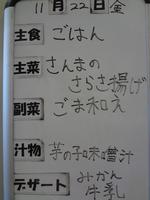 11月22日金
主食 ごはん
主菜 さんまの
さらさ揚げ
副菜 ごま和え
汁物 芋の子味噌汁
デザート みかん
牛乳